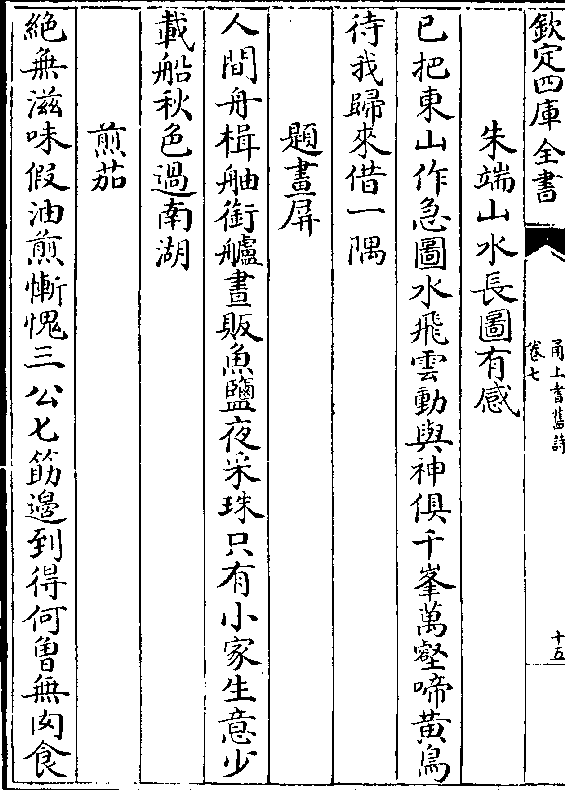 欽定四庫全書
甬上耆舊詩
卷七
十五
朱端山水長圖有感
已把東山作急圖水飛雲動與神俱千峯萬壑啼黃鳥
待我歸來借一隅
題畫屏
人間舟楫舳銜艫晝販魚鹽夜采珠只有小家生意少
載船秋色過南湖
煎茄
絶無滋味假油煎慚愧三公匕筯邊到得何曾無肉食